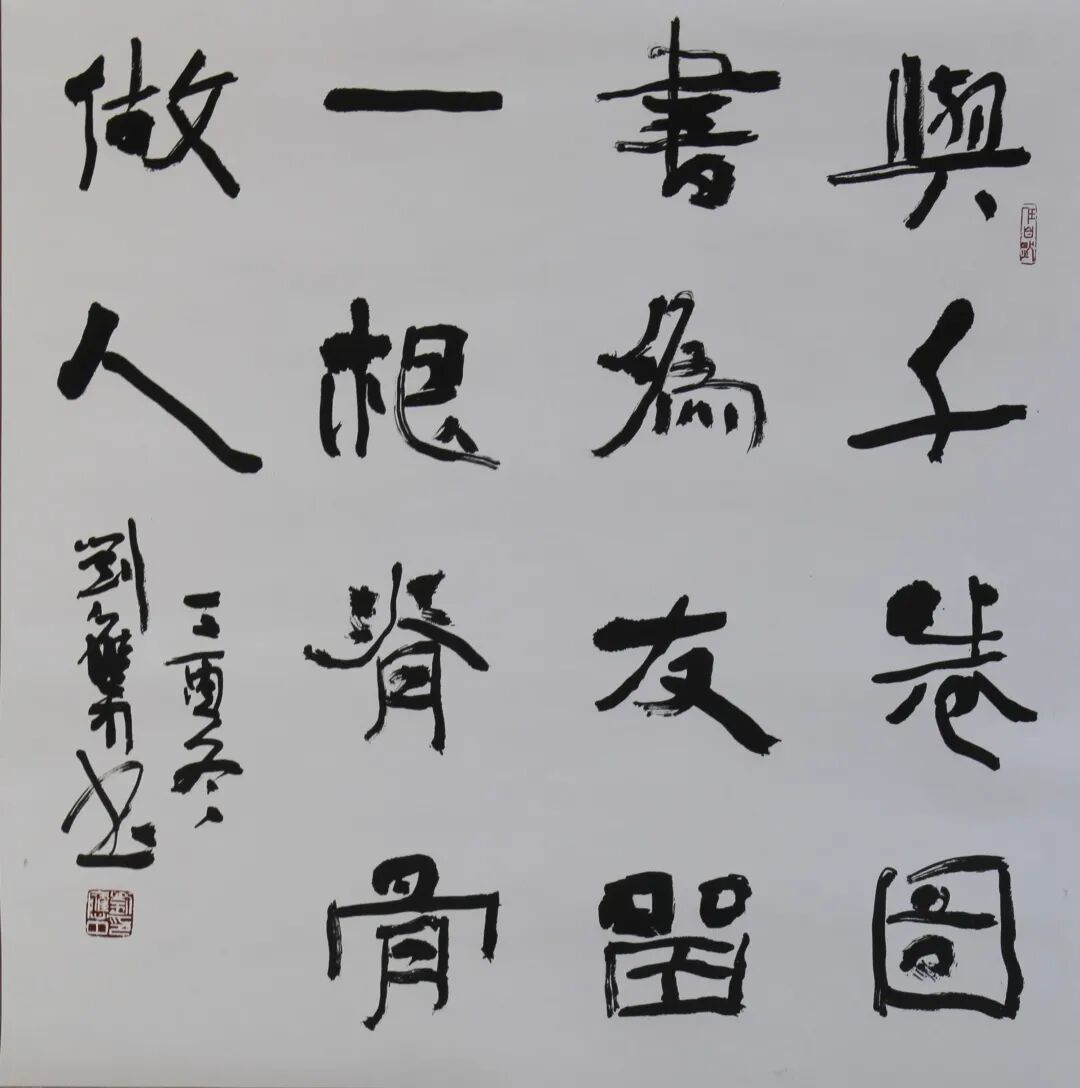 與千卷圖
書為友留
一根脊骨
做人
丁酉冬
劉
书